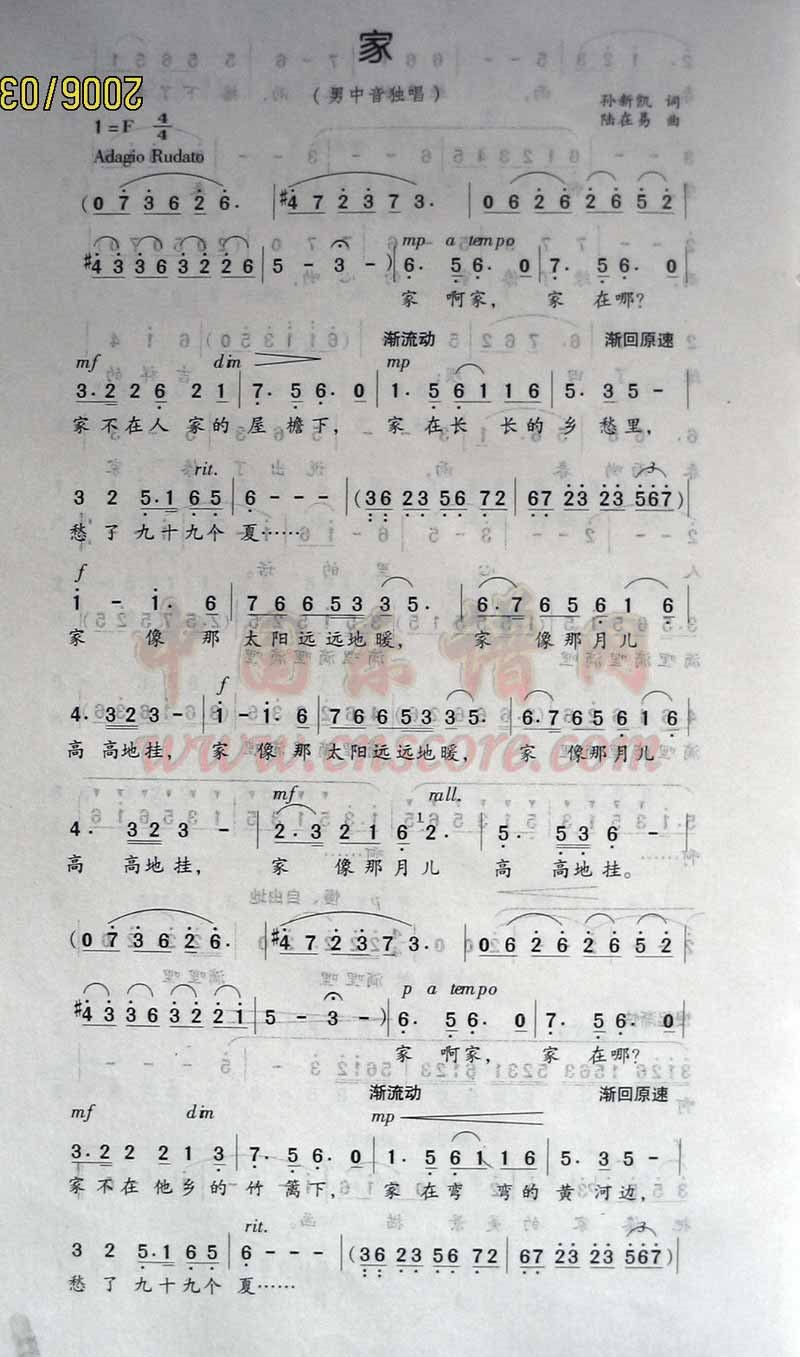 家
(男中音独唱)
孙新凯 词
陆在易 曲
2006/03
1=F 4/4
Adagio Rudato
(0 7 3 6 2 6. | #4 7 2 3 7 3. | 0 6 2 6 2 6 5 2
#4 3 3 6 3 2 2 6 | 5 - 3 - ) | 6. 5 6. 0 | 7. 5 6. 0
mp a tempo
家 啊家, 家 在哪?
渐流动 渐回原速
mf dim mp
3. 2 2 6 2 1 | 7. 5 6. 0 | 1. 5 6 1 1 6 | 5. 3 5 -
家不在人 家的屋 檐下, 家 在长 长的乡 愁里,
rit.
3 2 5. 1 6 5 | 6 - - - | (36 23 56 72 | 67 23 23 567)
3
愁 了 九十九个 夏……
f
i - i. 6 | 7 6 6 5 3 3 5. | 6. 7 6 5 6 1 6
家 像 那 太阳远远地暖, 家 像那月儿
f
4. 3 2 3 - | i - i. 6 | 7 6 6 5 3 3 5. | 6. 7 6 5 6 1 6
高 高地挂, 家 像 那 太阳远远地暖, 家 像那月儿
mf rall.
4. 3 2 3 - | 2. 3 2 1 6 1 2. | 5. 5 3 6 -
高 高地挂, 家 像那月儿 高 高地挂。
(0 7 3 6 2 6. | #4 7 2 3 7 3. | 0 6 2 6 2 6 5 2
p a tempo
#4 3 3 6 3 2 2 i | 5 - 3 - ) | 6. 5 6. 0 | 7. 5 6. 0
家 啊家, 家 在哪?
渐流动 渐回原速
mf dim mp
3. 2 2 2 1 3 | 7. 5 6. 0 | 1. 5 6 1 1 6 | 5. 3 5 -
家不在他乡的竹 篱下, 家 在弯 弯的黄 河边,
rit.
3 2 5. 1 6 5 | 6 - - - | (36 23 56 72 | 67 23 23 567)
3
愁 了 九十九个 夏……
中国乐谱网
www.cnscore.com